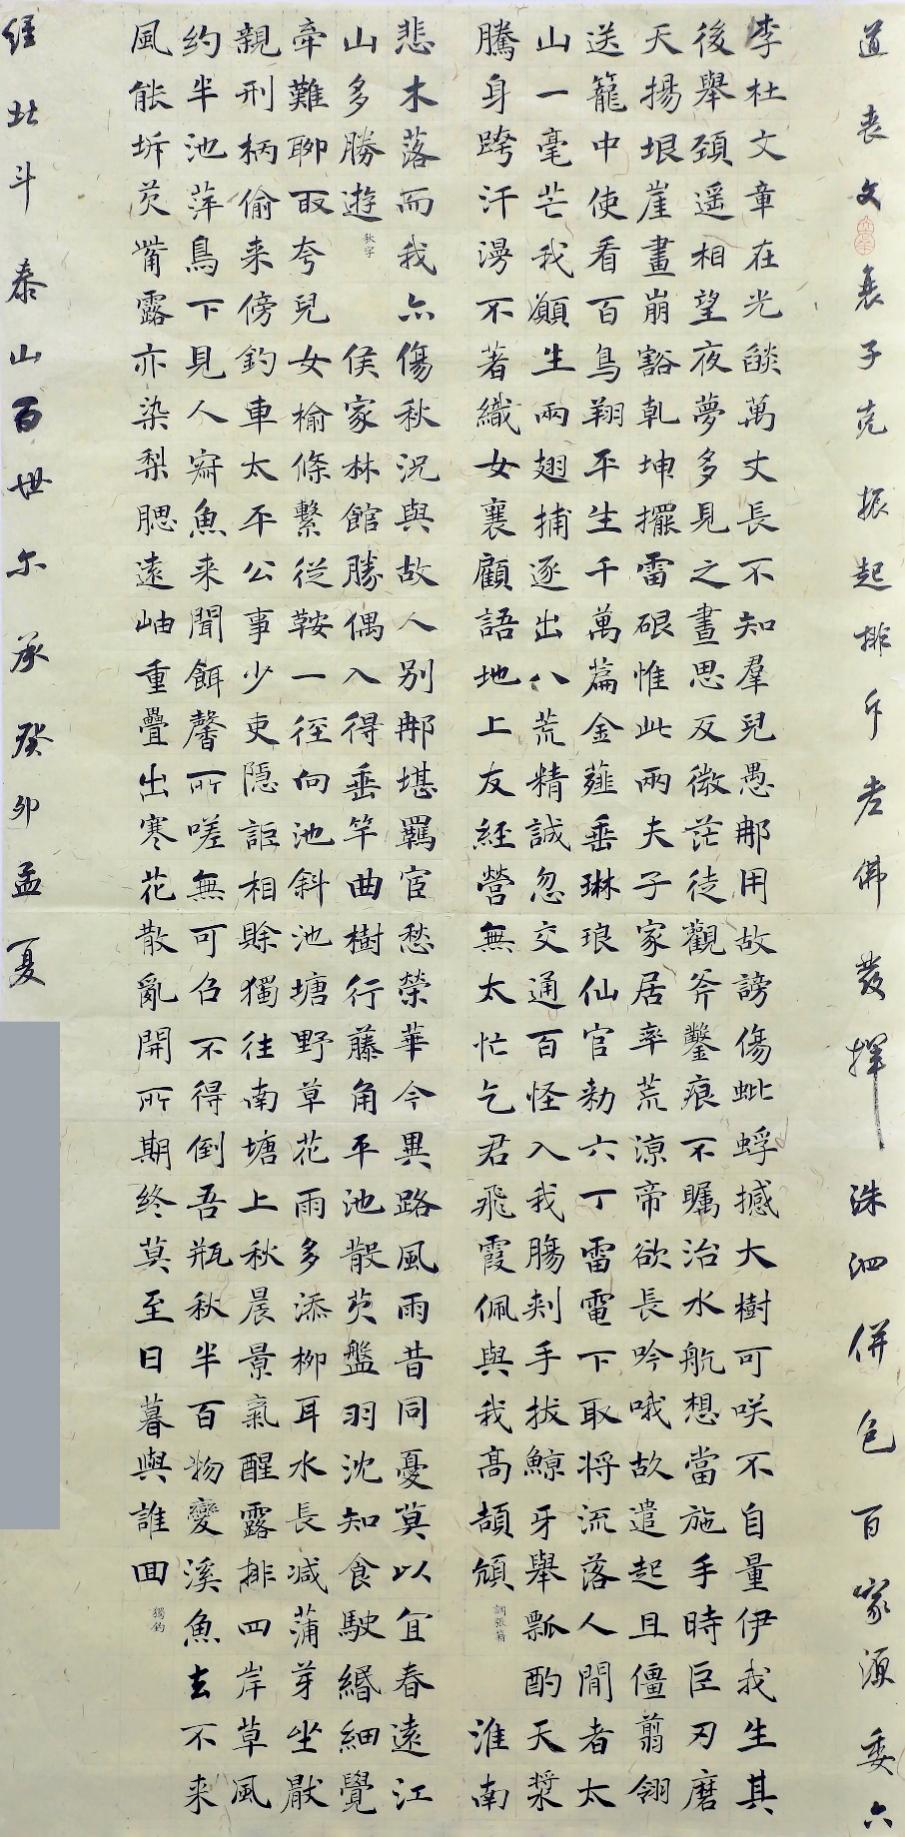 道丧文衰子克振起排斥老佛發揮洙泗併包百家源委六
李杜文章在光燄萬丈長不知羣兒愚那用故謗傷蚍蜉撼大樹可咲不自量伊我生其
後舉頸遥相望夜夢多見之晝思反微茫徒觀斧鑿痕不矚治水航想當施手時巨刃磨
天揚垠崖畫崩豁乹坤擺雷硠惟此兩夫子家居率荒涼帝欲長吟哦故遣起且僵翦翎
送籠中使看百鳥翔平生千萬篇金薤垂琳琅仙官勑六丁雷電下取將流落人間者太
山一毫芒我願生兩翅捕逐出八荒精誠忽交通百怪入我腸刾手拔鯨牙舉瓢酌天漿
騰身跨汗漫不著織女襄顧語地上友經營無太忙乞君飛霞佩與我高頡頏 調張籍 淮南
悲木落而我亦傷秋況與故人别那堪羈宦愁榮華今異路風雨昔同憂莫以宜春遠江
山多勝遊 秋字 侯家林館勝偶入得垂竿曲樹行藤角平池散芡盤羽沈知食駛緡細覺
牽難聊取夸兒女榆條繫從鞍一徑向池斜池塘野草花雨多添柳耳水長减蒲芽坐厭
親刑柄偷来傍釣車太平公事少吏隱詎相賒獨往南塘上秋晨景氣醒露排四岸草風
约半池萍鳥下見人寂魚来聞餌馨所嗟無可召不得倒吾瓶秋半百物變溪魚去不来
風能坼芡觜露亦染梨腮遠岫重疊出寒花散亂開所期終莫至日暮與誰回 獨釣
經北斗泰山百世尔承癸卯孟夏